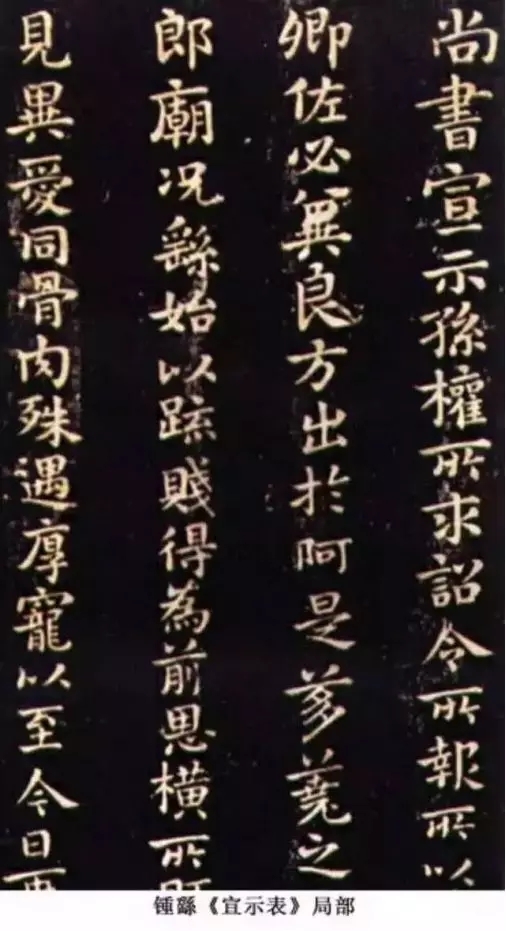 尚書宣示孫權所求詔令所報所以
卿佐必冀良方出於阿是芻蕘之
郎廟况繇始以疏賤得為前思橫所
見異愛同骨肉殊遇厚寵以至今日
鍾繇《宣示表》局部